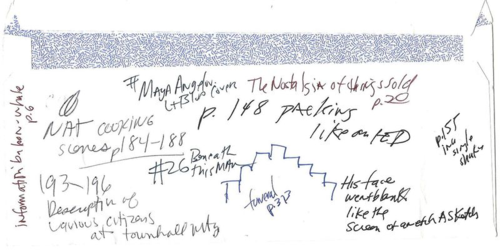 # Maya Angelou
Lt Blue cover
The Nostalgia of things sold
p. 20
p. 148 packing
like on TED
p. 155
single
NAT cooking
scenes p 184-188
#26 Beneath
this MAn
193-196
Description of
various citizens
at townhall mtg
funeral
p. 313
His face
went blank
like the
Screen of an etch A Sketch
p. 6